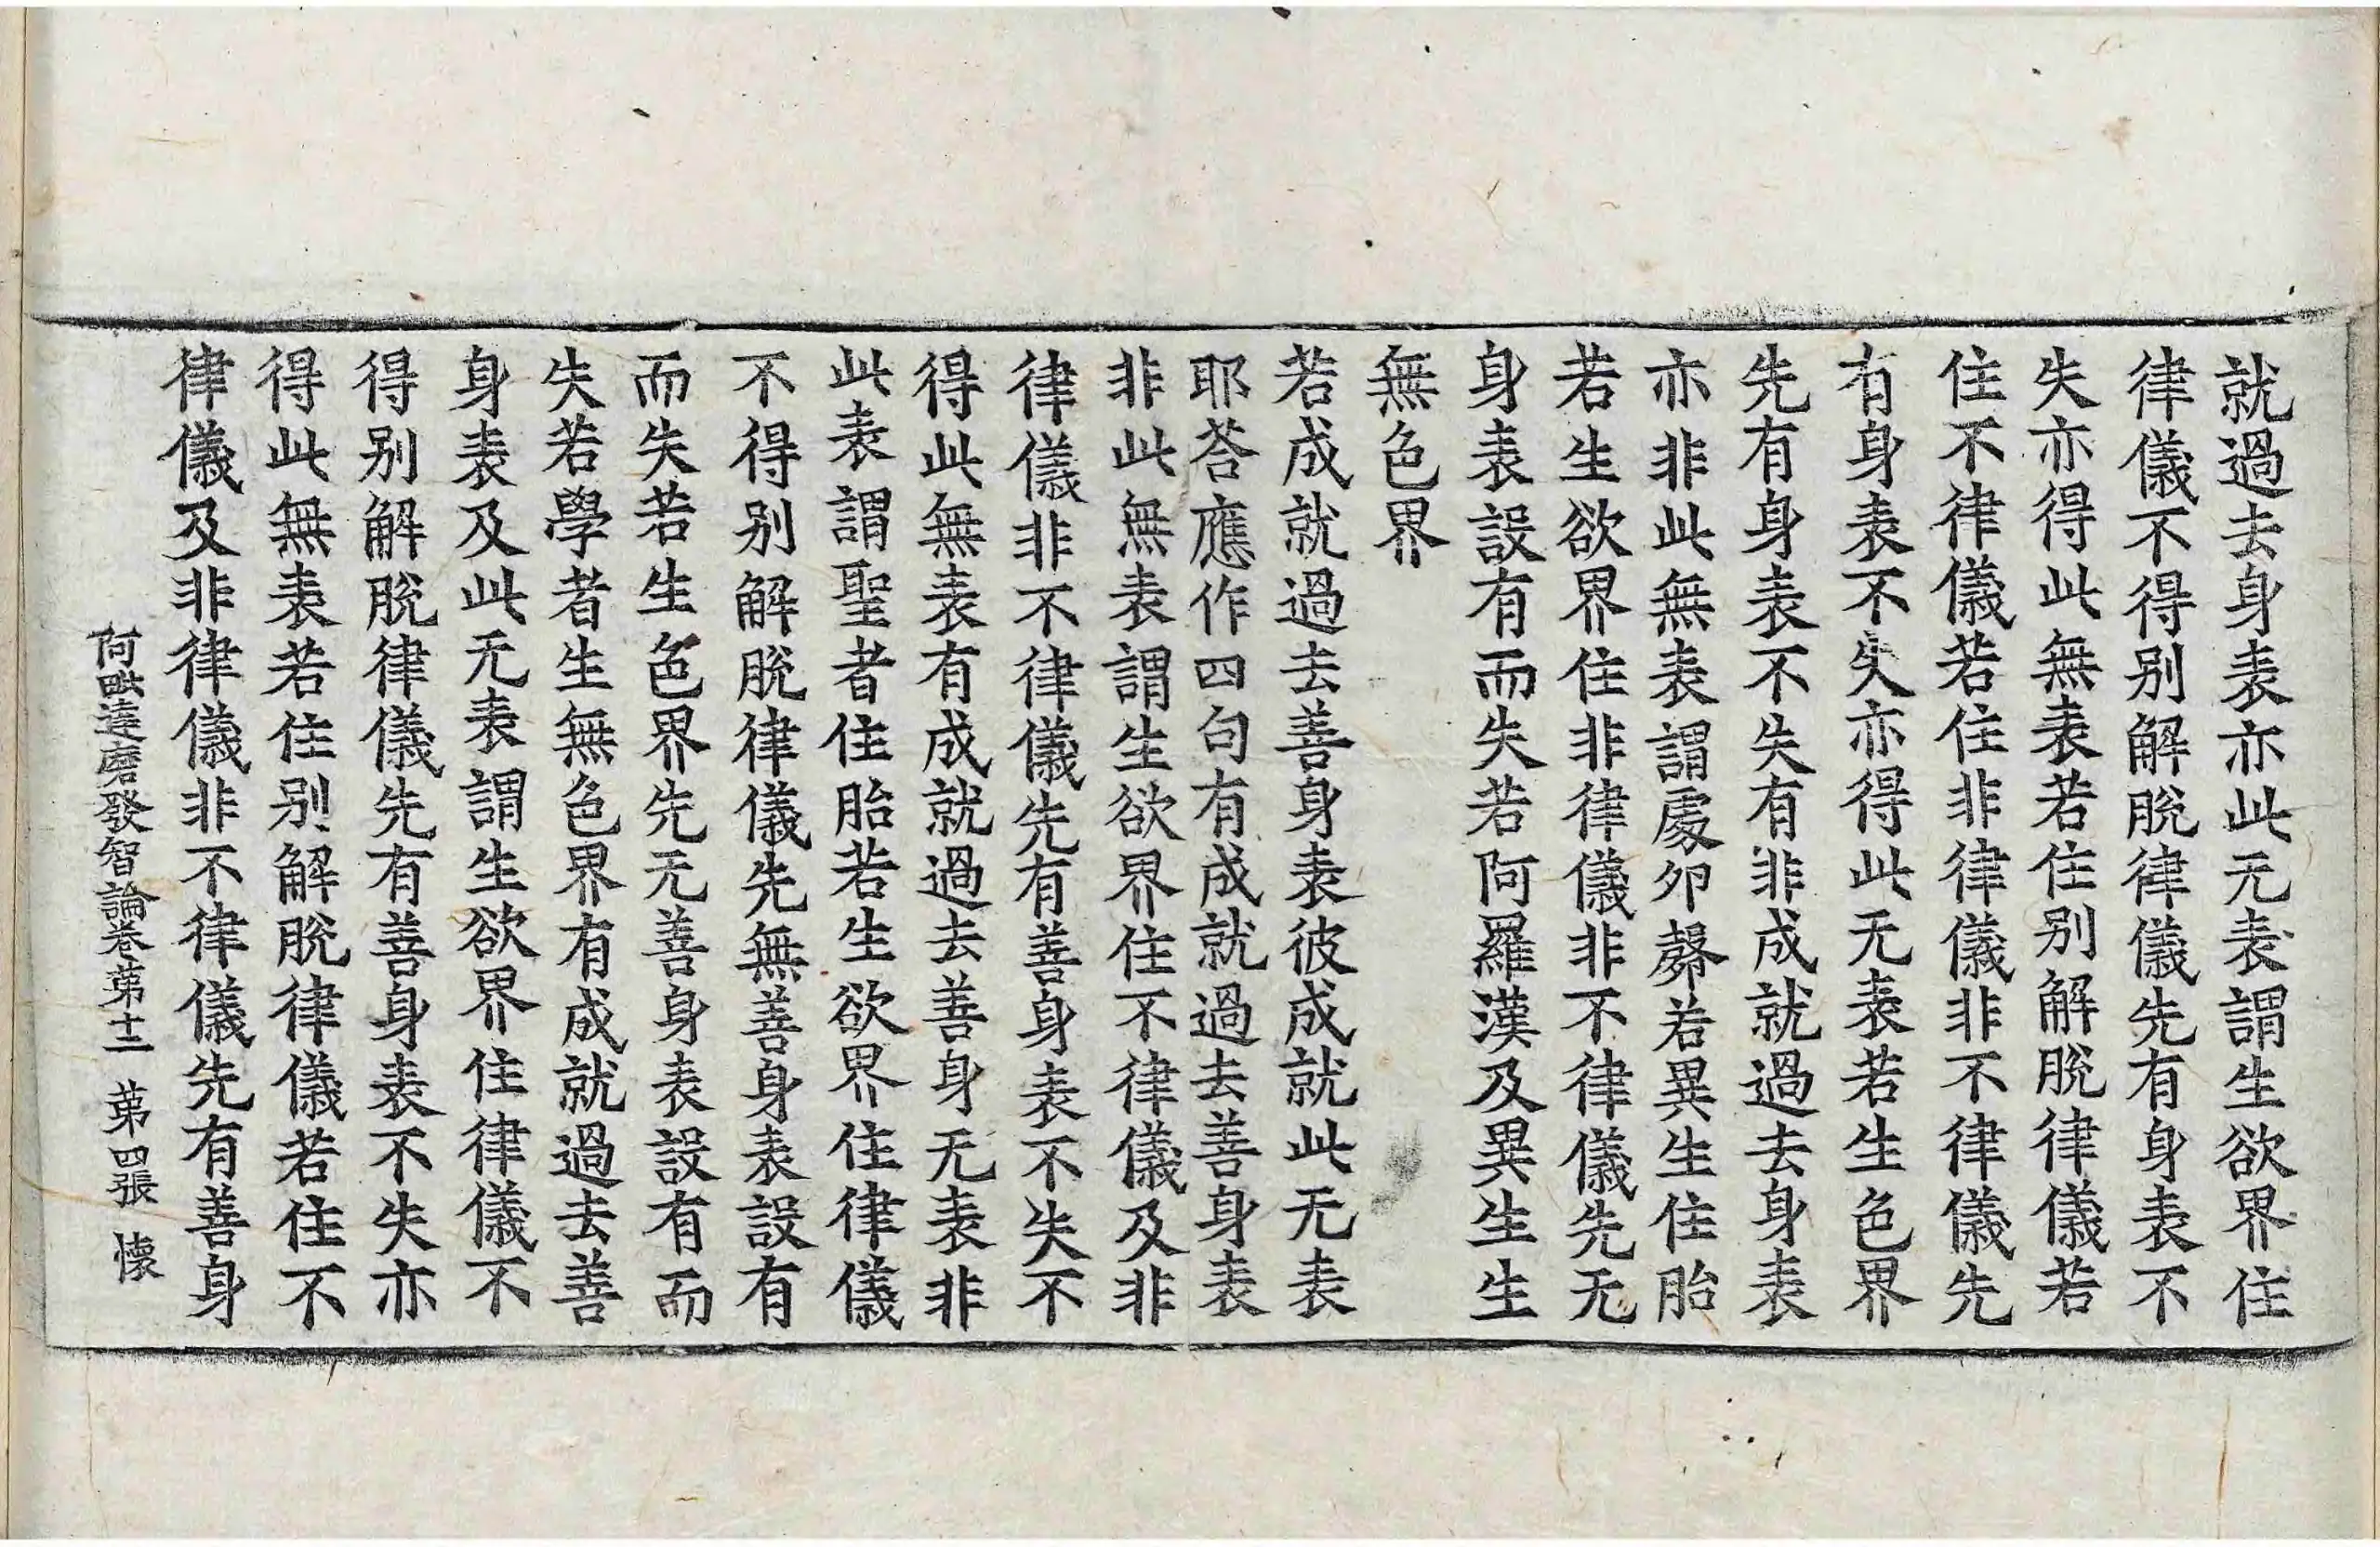 就過去身表亦此无表謂生欲界住
律儀不得别解脫律儀先有身表不
失亦得此無表若住别解脫律儀若
住不律儀若住非律儀非不律儀先
有身表不失亦得此无表若生色界
先有身表不失有非成就過去身表
亦非此無表謂處卵㲉若異生住胎
若生欲界住非律儀非不律儀先无
身表設有而失若阿羅漢及異生生
無色界
若成就過去善身表彼成就此无表
耶荅應作四句有成就過去善身表
非此無表謂生欲界住不律儀及非
律儀非不律儀先有善身表不失不
得此無表有成就過去善身无表非
此表謂聖者住胎若生欲界住律儀
不得别解脫律儀先無善身表設有
而失若生色界先无善身表設有而
失若學者生無色界有成就過去善
身表及此无表謂生欲界住律儀不
得别解脫律儀先有善身表不失亦
得此無表若住别解脫律儀若住不
律儀及非律儀非不律儀先有善身
阿毗達磨發智論卷苐十二 苐四張 懐